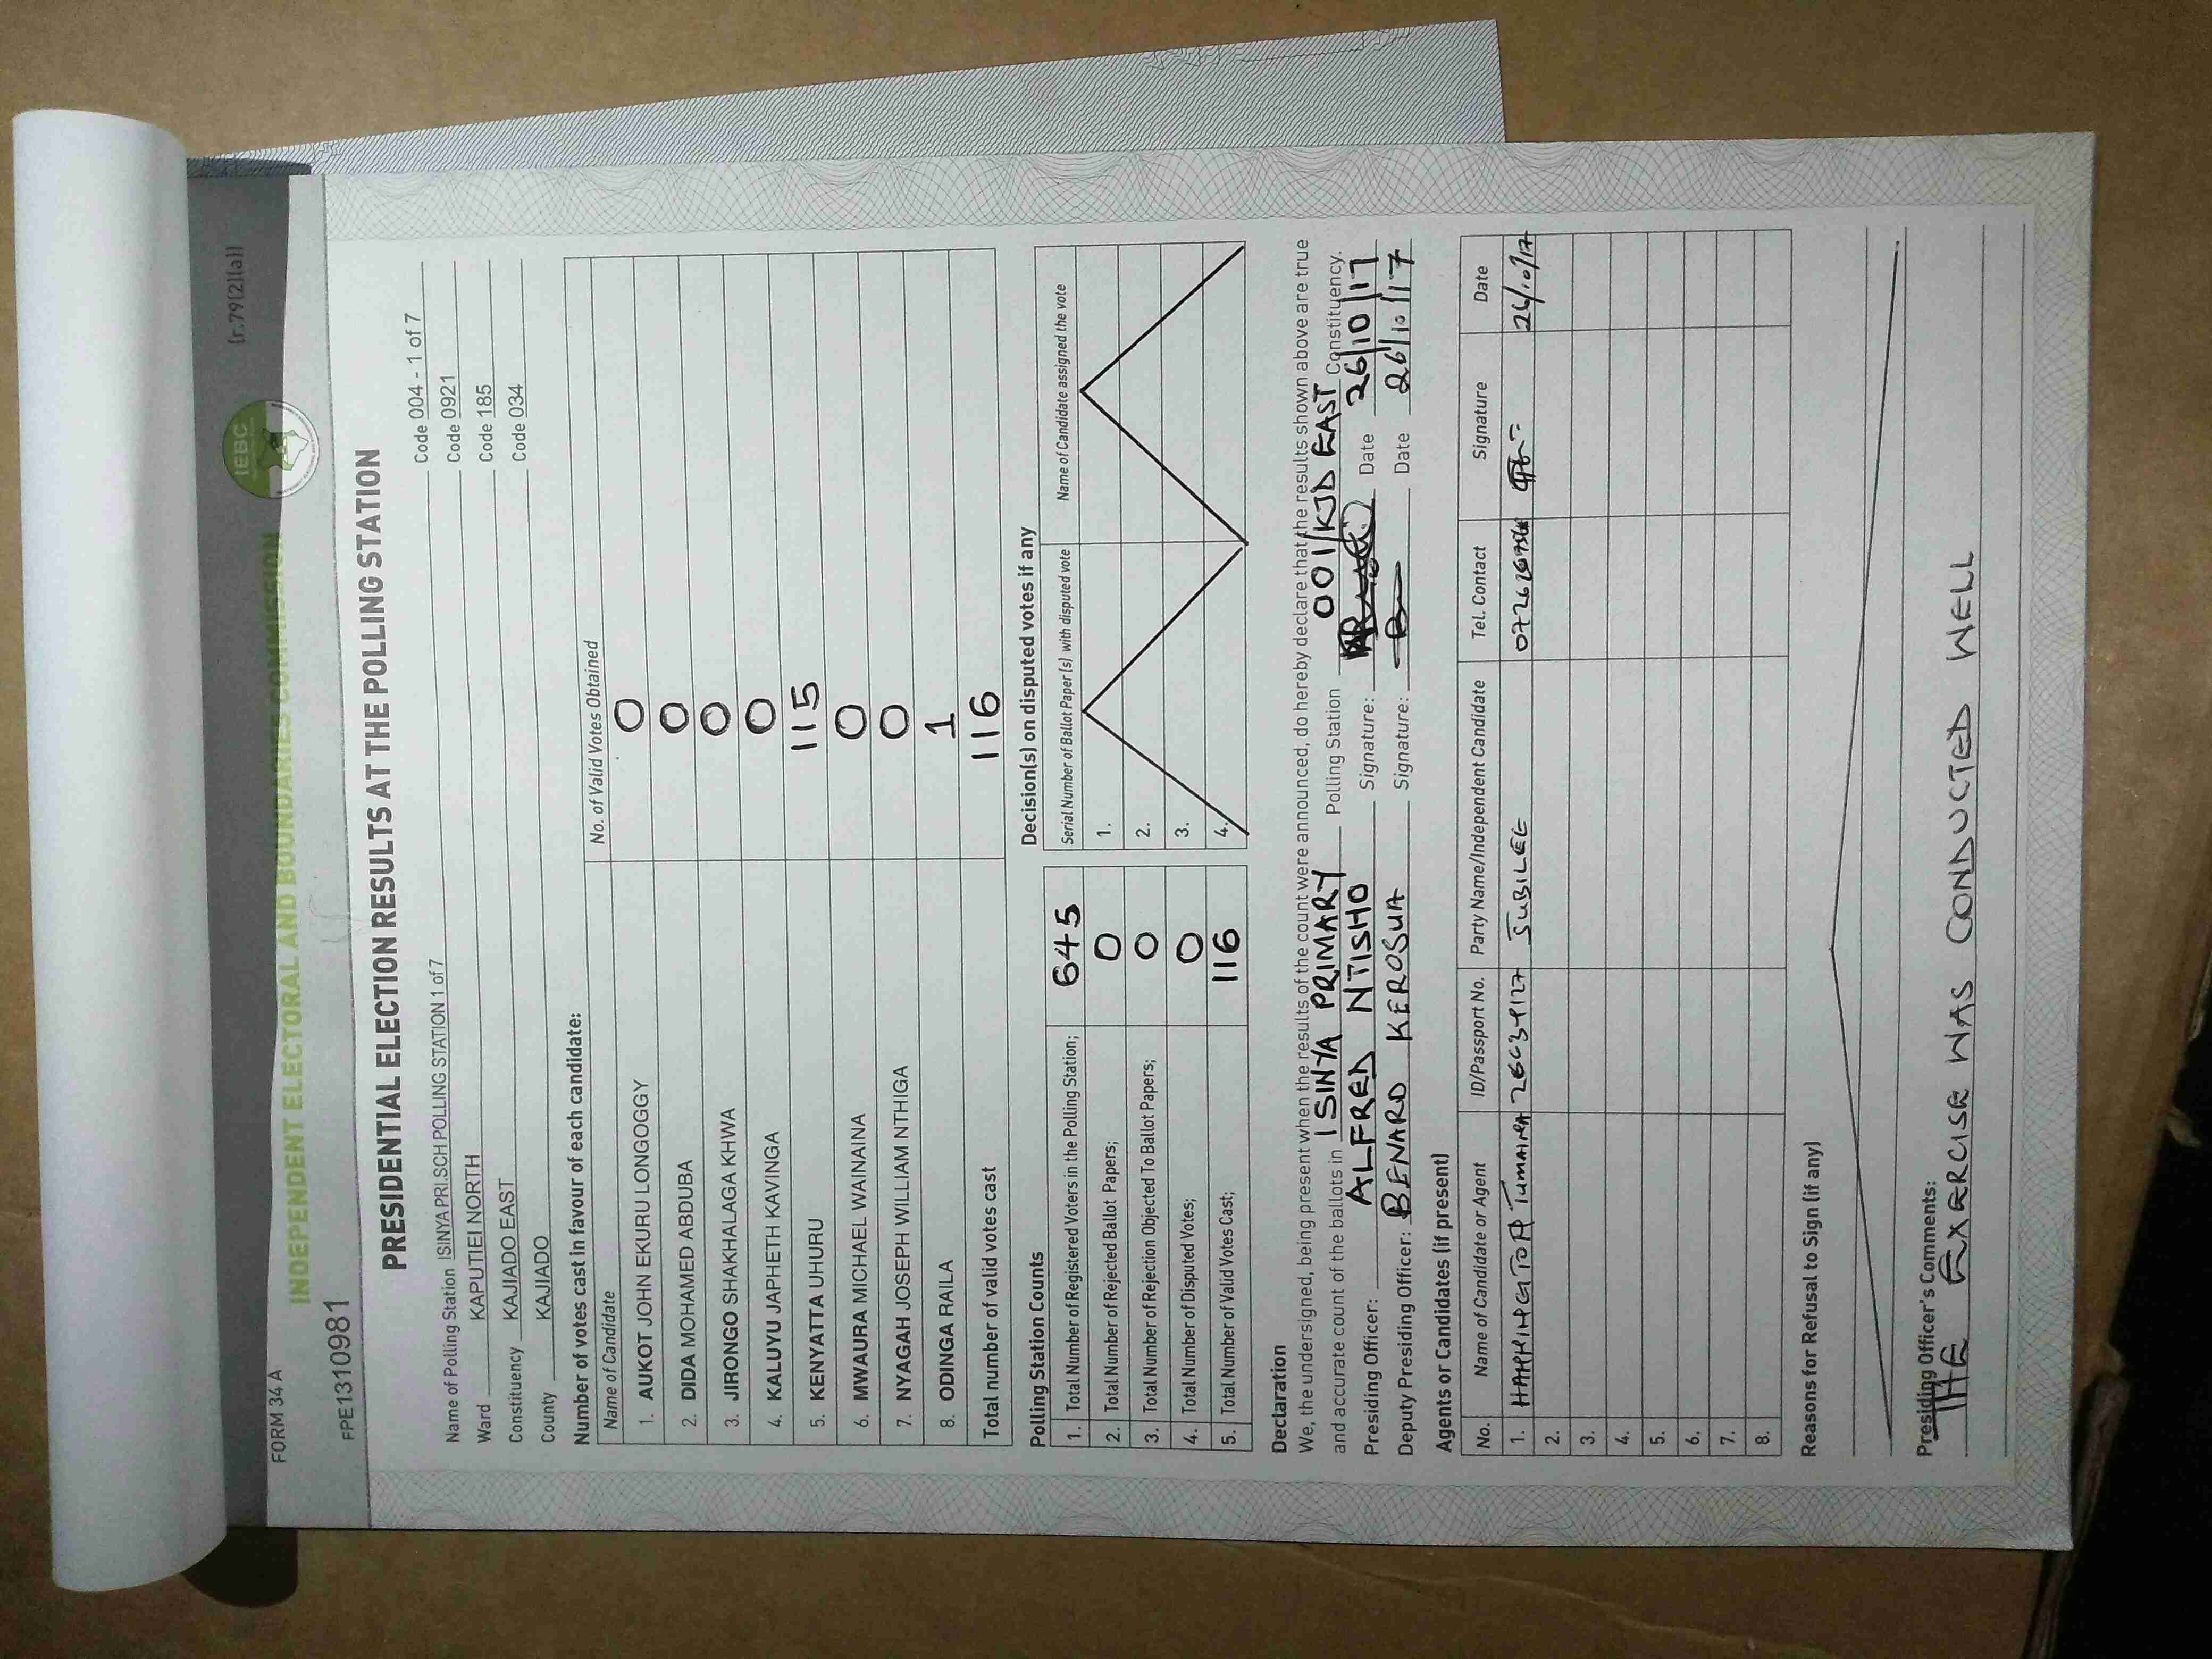 FORM 34 A
(r.79(2)(a))
IEBC
INDEPENDENT ELECTORAL AND BOUNDARIES COMMISSION
FPE1310981
PRESIDENTIAL ELECTION RESULTS AT THE POLLING STATION
Name of Polling Station ISINYA PRI.SCH POLLING STATION 1 of 7 Code 004 - 1 of 7
Ward KAPUTIEI NORTH Code 0921
Constituency KAJIADO EAST Code 185
County KAJIADO Code 034
Number of votes cast in favour of each candidate:
Name of Candidate No. of Valid Votes Obtained
1. AUKOT JOHN EKURU LONGOGGY 0
2. DIDA MOHAMED ABDUBA 0
3. JIRONGO SHAKHALAGA KHWA 0
4. KALUYU JAPHETH KAVINGA 0
5. KENYATTA UHURU 115
6. MWAURA MICHAEL WAINAINA 0
7. NYAGAH JOSEPH WILLIAM NTHIGA 0
8. ODINGA RAILA 1
Total number of valid votes cast 116
Polling Station Counts
1. Total Number of Registered Voters in the Polling Station; 645
2. Total Number of Rejected Ballot Papers; 0
3. Total Number of Rejection Objected To Ballot Papers; 0
4. Total Number of Disputed Votes; 0
5. Total Number of Valid Votes Cast; 116
Decision(s) on disputed votes if any
Serial Number of Ballot Paper (s) with disputed vote Name of Candidate assigned the vote
1.
2.
3.
4.
Declaration
We, the undersigned, being present when the results of the count were announced, do hereby declare that the results shown above are true
and accurate count of the ballots in ISINYA PRIMARY Polling Station 001/KJD EAST Constituency.
Presiding Officer: ALFRED NTISHO Signature: Date 26/10/17
Deputy Presiding Officer: BENARD KEROSUA Signature: Date 26/10/17
Agents or Candidates (if present)
No. Name of Candidate or Agent ID/Passport No. Party Name/Independent Candidate Tel. Contact Signature Date
1. JUBILEE 26/10/17
2.
3.
4.
5.
6.
7.
8.
Reasons for Refusal to Sign (if any)
Presiding Officer's Comments:
THE EXERCISE WAS CONDUCTED WELL